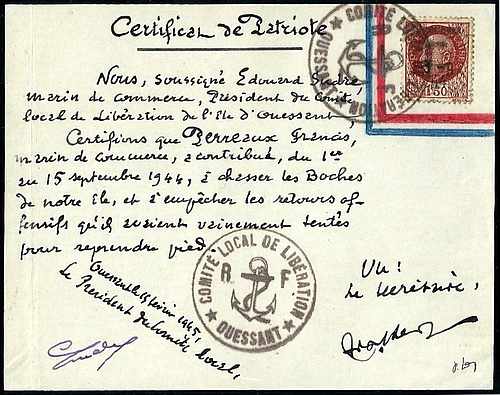 Certificat de Patriote
Nous, soussigné Edouard
marin de commerce, Président du Comité
local de Libération de l'île d'Ouessant,
Certifions que Perreaux Francis,
marin de commerce, a contribué, du 1er
au 15 septembre 1944, à chasser les Boches
de notre île, et à empêcher les retours of-
fensifs qu'ils avaient vainement tentés
pour reprendre pied.
Ouessant, le 15 février 1945,
Le Président du Comité local,
Vu:
Le Secrétaire,
COMITÉ LOCAL DE LIBÉRATION
R F
OUESSANT
1F50